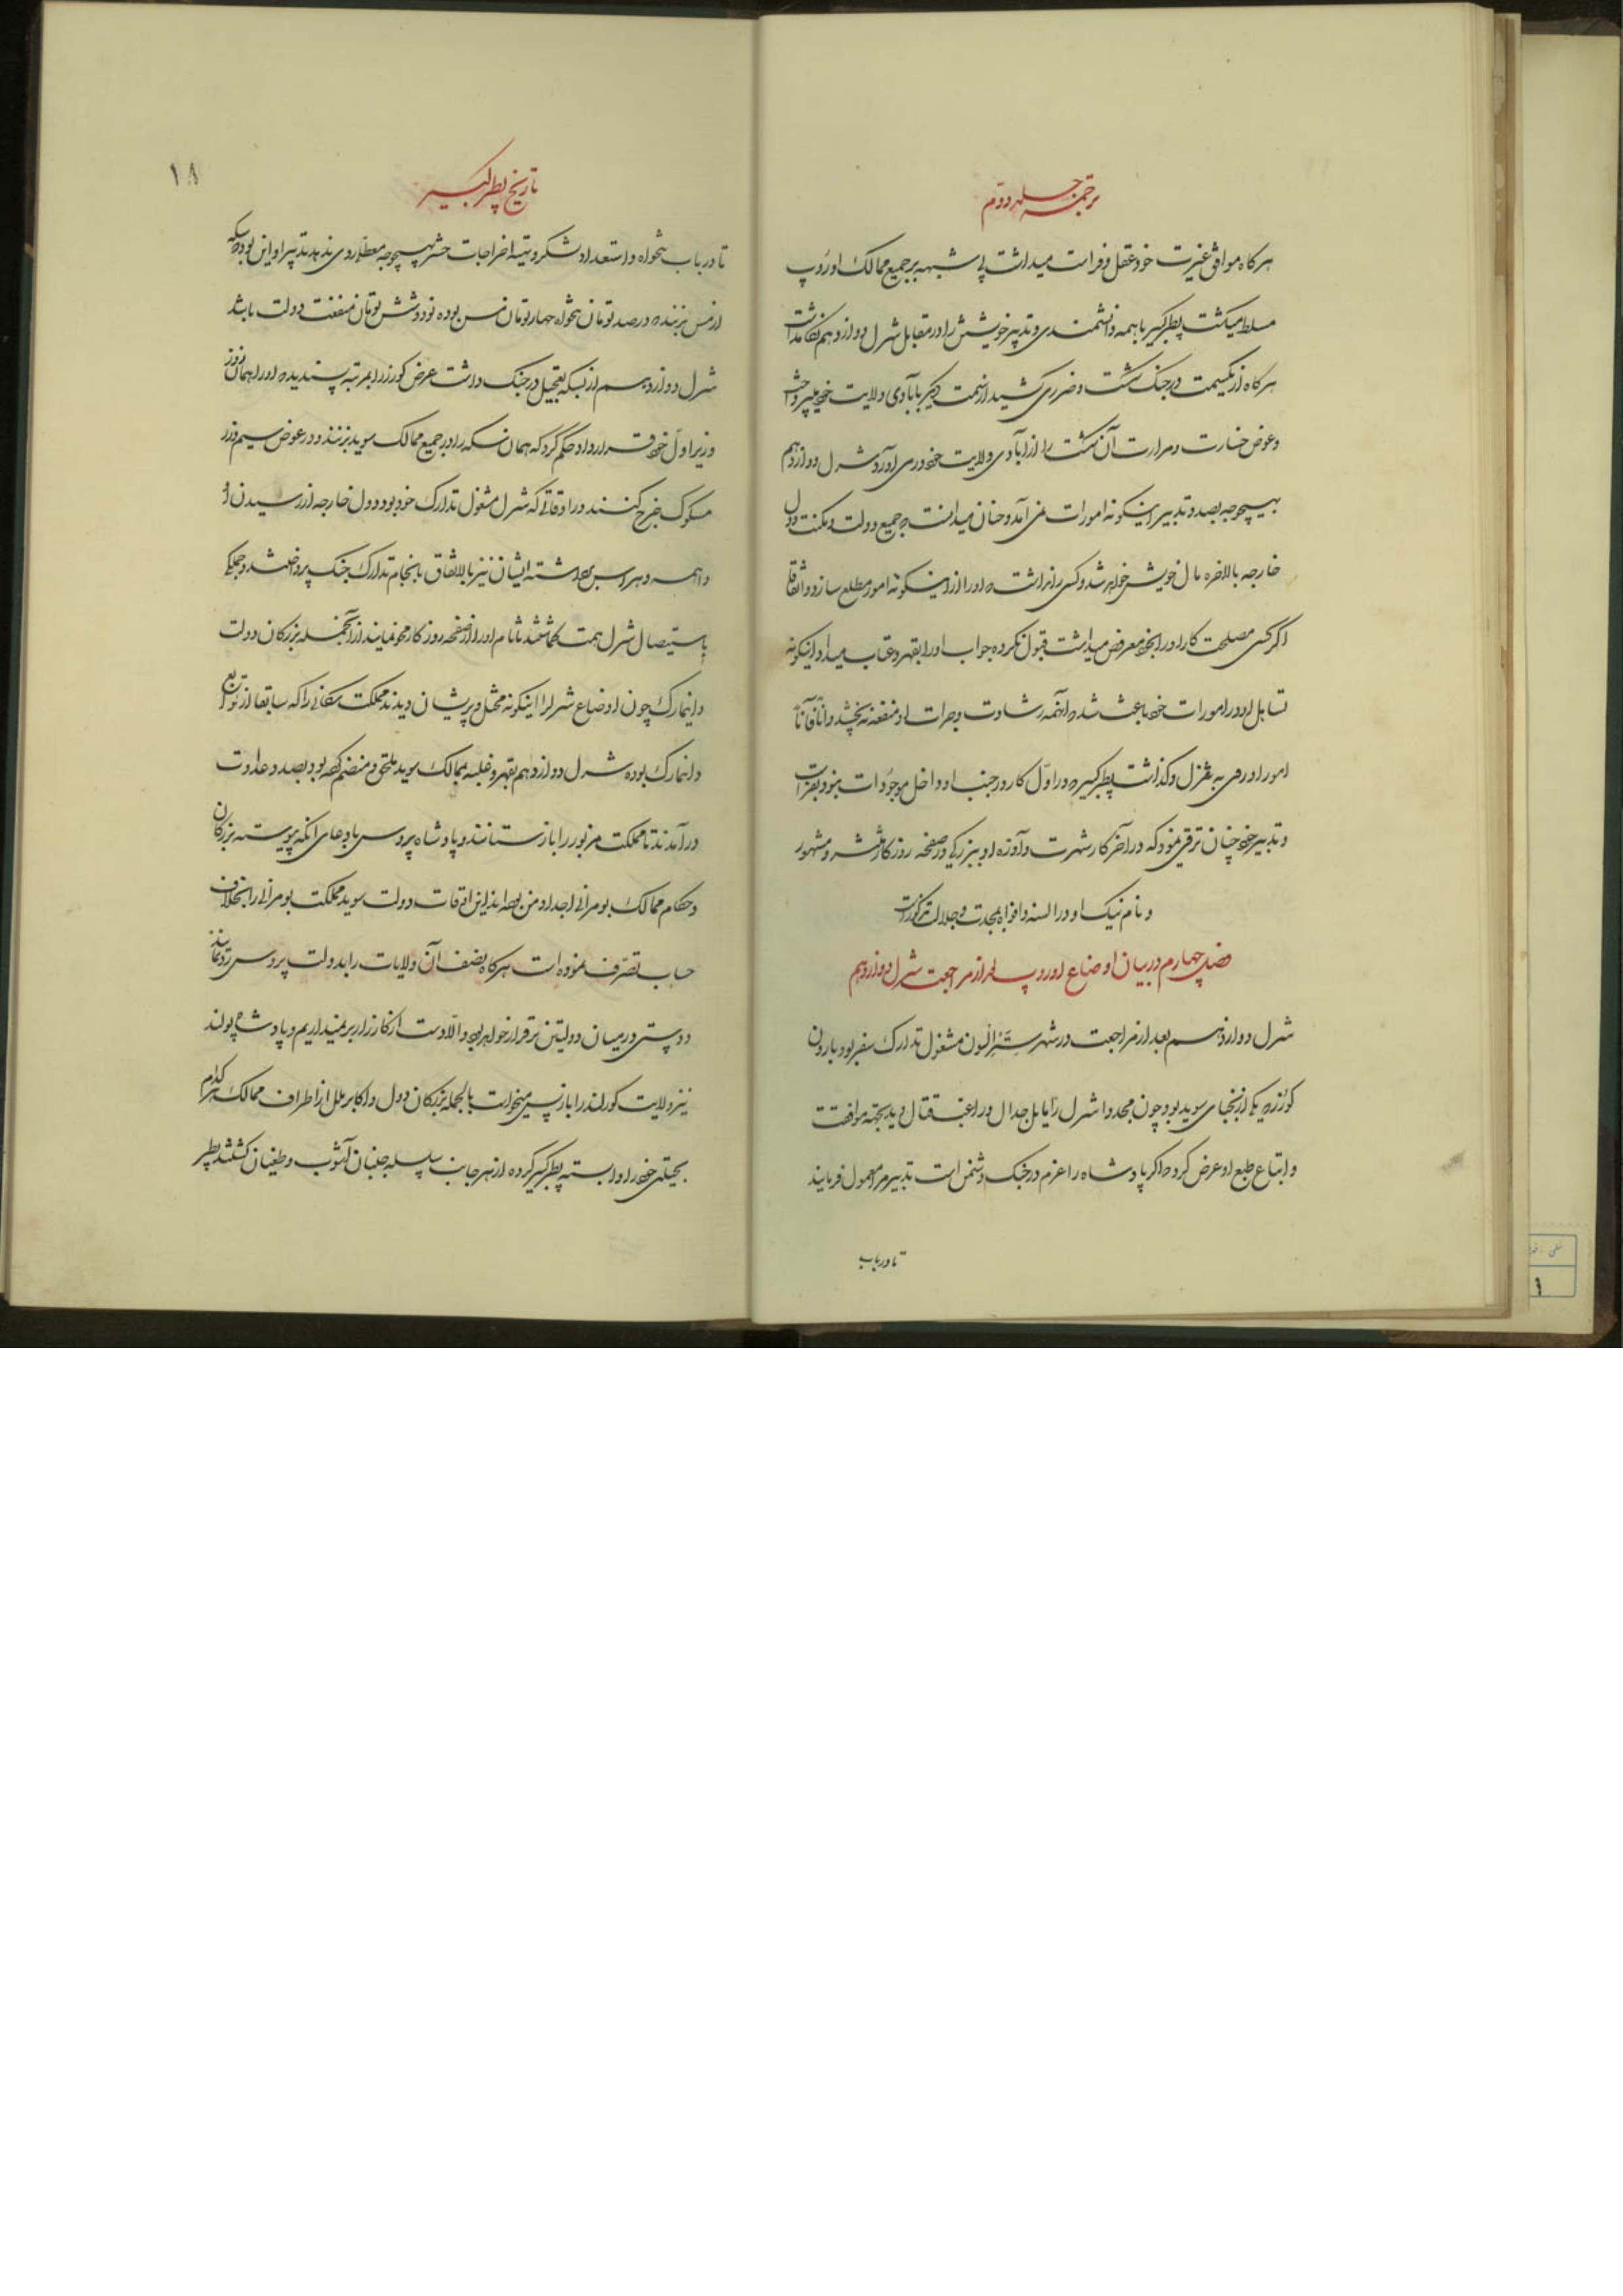 ترجمه جلد دویم
هرکاه موافق غیرت خود عقل و فراست میداشت بی شبهه بر جمیع ممالک اوروپ
مسلط میکشت پطر کبیر با همه دانشمندی و تدبیر خویش را در مقابل شرل دوازدهم
هرکاه از یکسمت در جنک شکست و ضرری کشید از سمت دیکر بآبادی ولایت خود میپرداخت
و عوض خسارت و مرارت آن شکست را از آبادی ولایت خود در می آورد شرل دوازدهم
بهیچوجه بصدد تدبیر اینکونه امورات نمی آمد و چنان میدانست که جمیع دولت و مکنت دول
خارجه بالاخره مال خویش خواهد شد و کسی را نداشت که او را از اینکونه امور مطلع سازد و اتفاقا
اکر کسی مصلحت کار او را بخود معروض میداشت قبول نکرده جواب او را بقهر و عتاب میداد اینکونه
تساهل او در امورات خود باعث شد که آنهمه رشادت و جرأت او منفعه نبخشد و آنا فآنا
امور او رو به تنزل کذاشت پطر کبیر که در اول کار در جنب او داخل موجودات نبود بفراست
و تدبیر خود چنان ترقی نمود که در آخر کار شهرت و آوازه او ببزرکی در صفحه روزکار منتشر و مشهور
و نام نیک او در السنه و افواه بمجدت و جلالت مذکور است
فصل چهارم در بیان اوضاع اوروپ بعد از مراجعت شرل دوازدهم
شرل دوازدهم بعد از مراجعت در شهر ستزالسون مشغول تدارک سفر بود بارون
کورتز که یکی از نجبای سوید بود چون مجددا شرل را مایل جدال و راغب قتال دید بجهة موافقت
و اتباع طبع او عرض کرد که اکر پادشاه را عزم در جنک دشمن است تدبیر مرا معمول فرمایند
تا در باب
تاریخ پطر کبیر
۱۸
تا در باب تنخواه و استعداد لشکر و تهیه اخراجات حشر بهیچوجه معطلی روی ندهد تدبیر او این بود که سکه
از مس بزنند که در صد تومان تنخواه چهار تومان مس بوده نود و شش تومان منفعت دولت باشد
شرل دوازدهم از بسکه تعجیل در جنک داشت عرض کورتز را بمرتبه پسندید که او را همان روز
وزیر اول خود قرار داد حکم کرد که همان سکه را در جمیع ممالک سوید بزنند و در عوض سیم و زر
مسکوک خرج کنند در اوقاتی که شرل مشغول تدارک خود بود دول خارجه از رسیدن او
واهمه و هراس بسیار داشته ایشان نیز بالاتفاق بانجام تدارک جنک پرداختند و جملکی
باستیصال شرل همت کماشتند تا نام او را از صفحه روزکار محو نمایند از آنجمله بزرکان دولت
دانمارک چون اوضاع شرل را اینکونه مختل و پریشان دیدند مملکت سکانی را که سابقا از توابع
دانمارک بوده شرل دوازدهم بقهر و غلبه بممالک سوید ملحق و منضم کرده بود بصدد عداوت
در آمدند تا مملکت مزبور را باز ستانند و پادشاه پروس باد عای آنکه پیوسته بزرکان
و حکام ممالک پومرانی اجداد من بوده اند این اوقات دولت سوید مملکت پومرانی را بخلاف
حساب تصرف نموده است هرکاه نصف آن ولایات را بدولت پروس رد نمایند
دوستی در میان دولتین برقرار خواهد بود و الا دست از کارزار بر نمیداریم و پادشاه پولند
نیز ولایت کورلند را باز پس میخواست بالجمله بزرکان دول و اکابر ملل از اطراف ممالک هر کدام
بحیلتی خود را وابسته پطر کبیر کرده از هر جانب سلسله جنبان آشوب و طغیان کشتند پطر